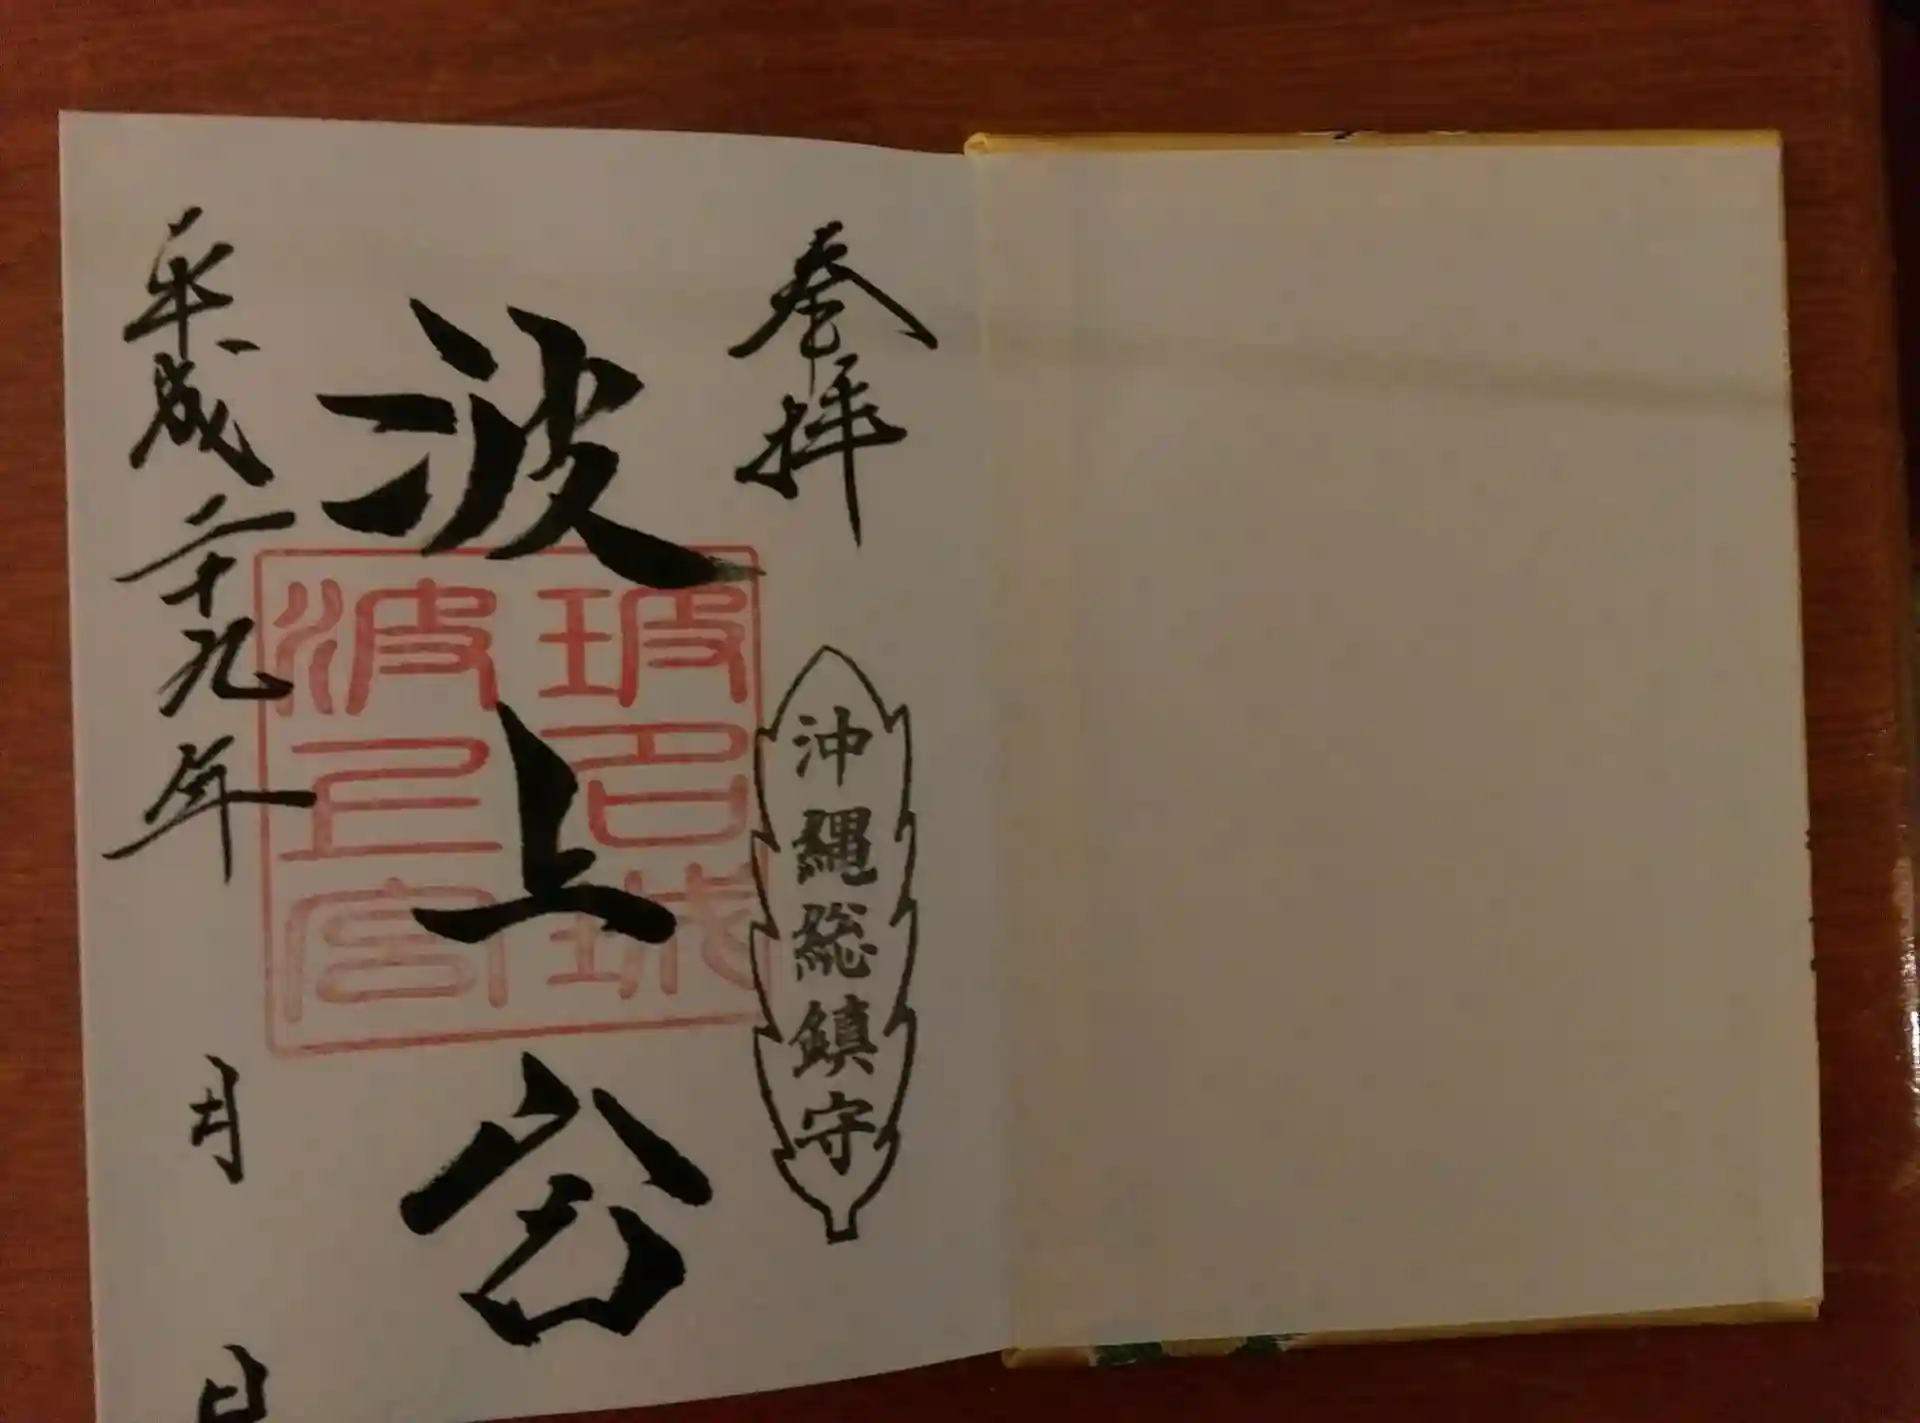 奉拝
沖縄総鎮守
波上宮
玻名城
波上宮
平成二十九年 月 日